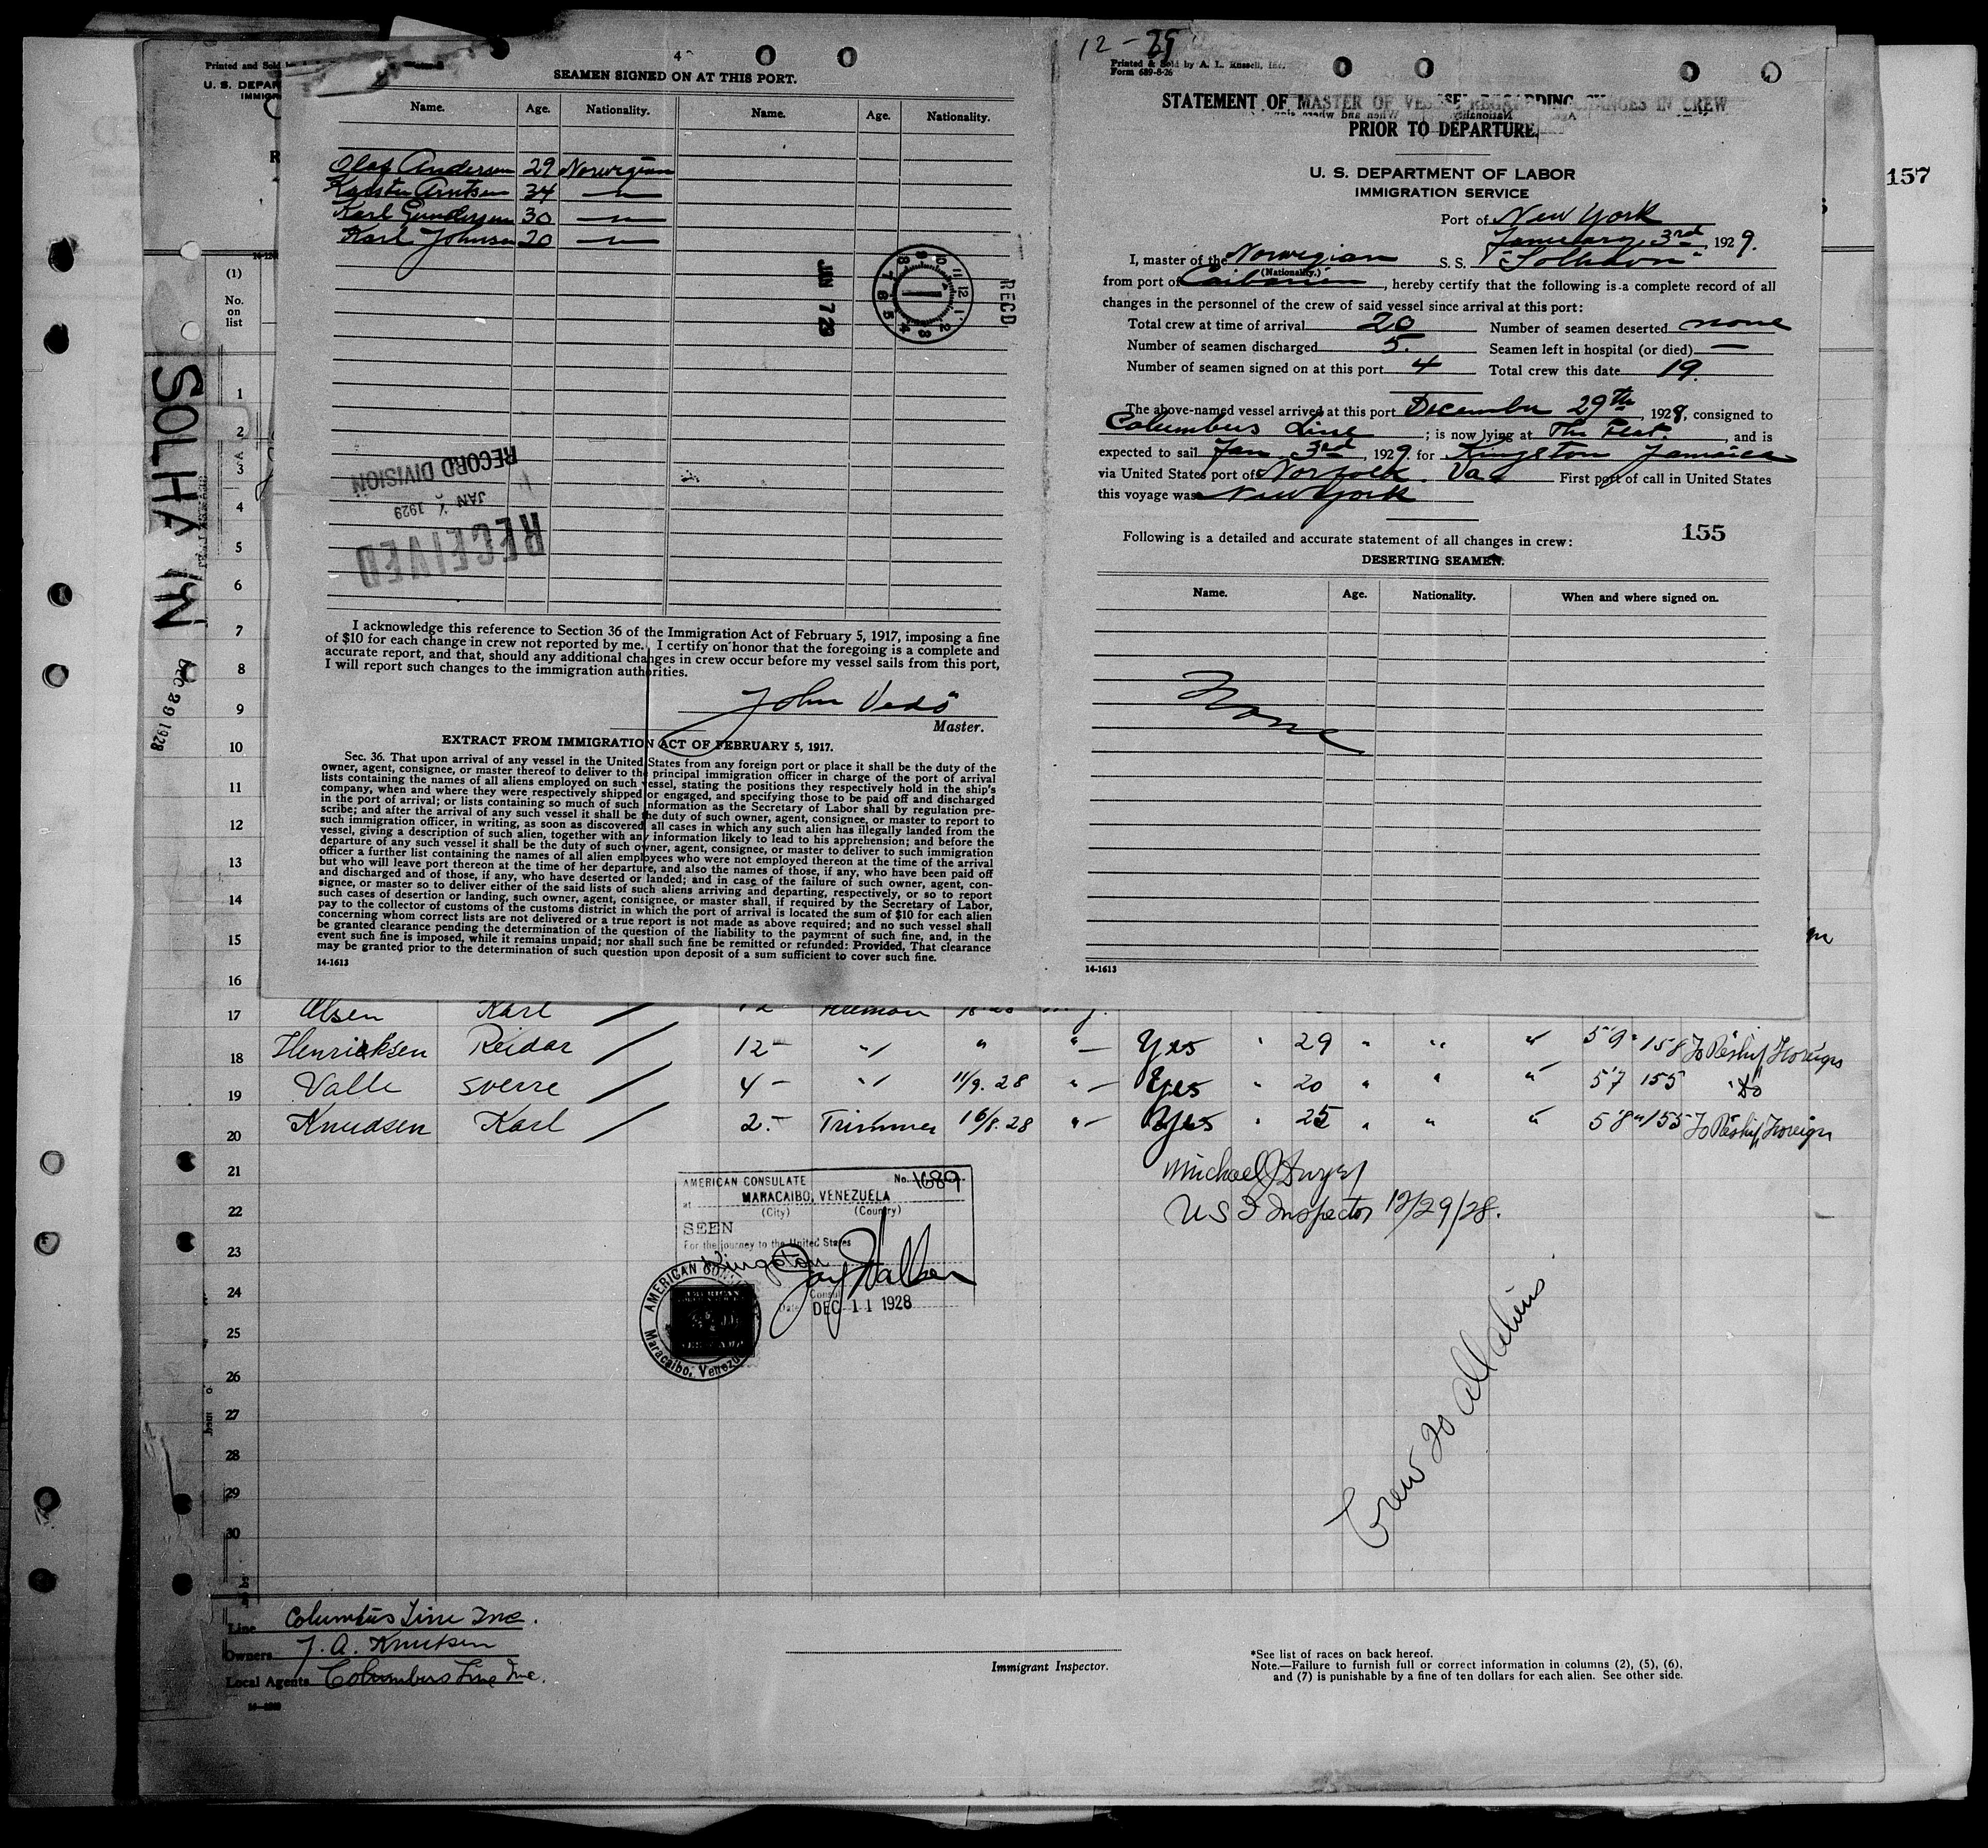 4
SEAMEN SIGNED ON AT THIS PORT.
Name. Age. Nationality. Name. Age. Nationality.
Olaf Andersen 29 Norwegian
Karsten Arntsen 34 —"—
Karl Gundersen 30 —"—
Karl Johnsen 20 —"—
JAN 7 29
REC'D
RECORD DIVISION
JAN 7 1929
RECEIVED
I acknowledge this reference to Section 36 of the Immigration Act of February 5, 1917, imposing a fine
of $10 for each change in crew not reported by me. I certify on honor that the foregoing is a complete and
accurate report, and that, should any additional changes in crew occur before my vessel sails from this port,
I will report such changes to the immigration authorities.
John Vedö
Master.
EXTRACT FROM IMMIGRATION ACT OF FEBRUARY 5, 1917.
Sec. 36. That upon arrival of any vessel in the United States from any foreign port or place it shall be the duty of the
owner, agent, consignee, or master thereof to deliver to the principal immigration officer in charge of the port of arrival
lists containing the names of all aliens employed on such vessel, stating the positions they respectively hold in the ship's
company, when and where they were respectively shipped or engaged, and specifying those to be paid off and discharged
in the port of arrival; or lists containing so much of such information as the Secretary of Labor shall by regulation pre-
scribe; and after the arrival of any such vessel it shall be the duty of such owner, agent, consignee, or master to report to
such immigration officer, in writing, as soon as discovered, all cases in which any such alien has illegally landed from the
vessel, giving a description of such alien, together with any information likely to lead to his apprehension; and before the
departure of any such vessel it shall be the duty of such owner, agent, consignee, or master to deliver to such immigration
officer a further list containing the names of all alien employees who were not employed thereon at the time of the arrival
but who will leave port thereon at the time of her departure, and also the names of those, if any, who have been paid off
and discharged and of those, if any, who have deserted or landed; and in case of the failure of such owner, agent, con-
signee, or master so to deliver either of the said lists of such aliens arriving and departing, respectively, or so to report
such cases of desertion or landing, such owner, agent, consignee, or master shall, if required by the Secretary of Labor,
pay to the collector of customs of the customs district in which the port of arrival is located the sum of $10 for each alien
concerning whom correct lists are not delivered or a true report is not made as above required; and no such vessel shall
be granted clearance pending the determination of the question of the liability to the payment of such fine, and, in the
event such fine is imposed, while it remains unpaid; nor shall such fine be remitted or refunded: Provided, That clearance
may be granted prior to the determination of such question upon deposit of a sum sufficient to cover such fine.
14-1613
12-29
Printed & Sold by A. L. Russell, Inc.
Form 689-8-26
STATEMENT OF MASTER OF VESSEL REGARDING CHANGES IN CREW
PRIOR TO DEPARTURE.
U. S. DEPARTMENT OF LABOR
IMMIGRATION SERVICE
Port of New York
January 3rd, 1929.
I, master of the Norwegian S. S. "Solhavn"
(Nationality.)
from port of Caibarien, hereby certify that the following is a complete record of all
changes in the personnel of the crew of said vessel since arrival at this port:
Total crew at time of arrival 20 Number of seamen deserted none
Number of seamen discharged 5. Seamen left in hospital (or died) —
Number of seamen signed on at this port 4 Total crew this date 19.
The above-named vessel arrived at this port December 29th, 1928, consigned to
Columbus Line; is now lying at The Flat., and is
expected to sail Jan 3rd, 1929. for Kingston Jamaica
via United States port of Norfolk. Va. First port of call in United States
this voyage was New York
155
Following is a detailed and accurate statement of all changes in crew:
DESERTING SEAMEN.
Name. Age. Nationality. When and where signed on.
None
14-1613
157
Printed and Sold
U. S. DEPAR
IMMIGR
(1)
No.
on
list
SOLHAVN
DEC 29 1928
1
2
3
4
5
6
7
8
9
10
11
12
13
14
15
16
17 Olsen Karl
18 Henricksen Reidar 12— " " "— Yes " 29 " " " 5'9" 158 To Reship Foreign
19 Valle Sverre 4— " 11/9.28 "— Yes " 20 " " " 5'7 155 Do
20 Knudsen Karl 2.— Trimmer 16/8.28 "— Yes " 25 " " " 5'8" 155 To Reship Foreign
21
22
23
24
25
26
27
28
29
30
U S I Inspector 12/29/28.
AMERICAN CONSULATE No. 1689
at MARACAIBO, VENEZUELA
(City) (Country)
SEEN
For the journey to the United States
Kingston
Jay Walker
Consul
Date DEC 11 1928
AMERICAN
Maracaibo, Venezu
Crew 20 All aliens
Line Columbus Line Inc.
Owners J. A. Knutsen
Local Agents Columbus Line Inc.
Immigrant Inspector.
*See list of races on back hereof.
Note.—Failure to furnish full or correct information in columns (2), (5), (6),
and (7) is punishable by a fine of ten dollars for each alien. See other side.